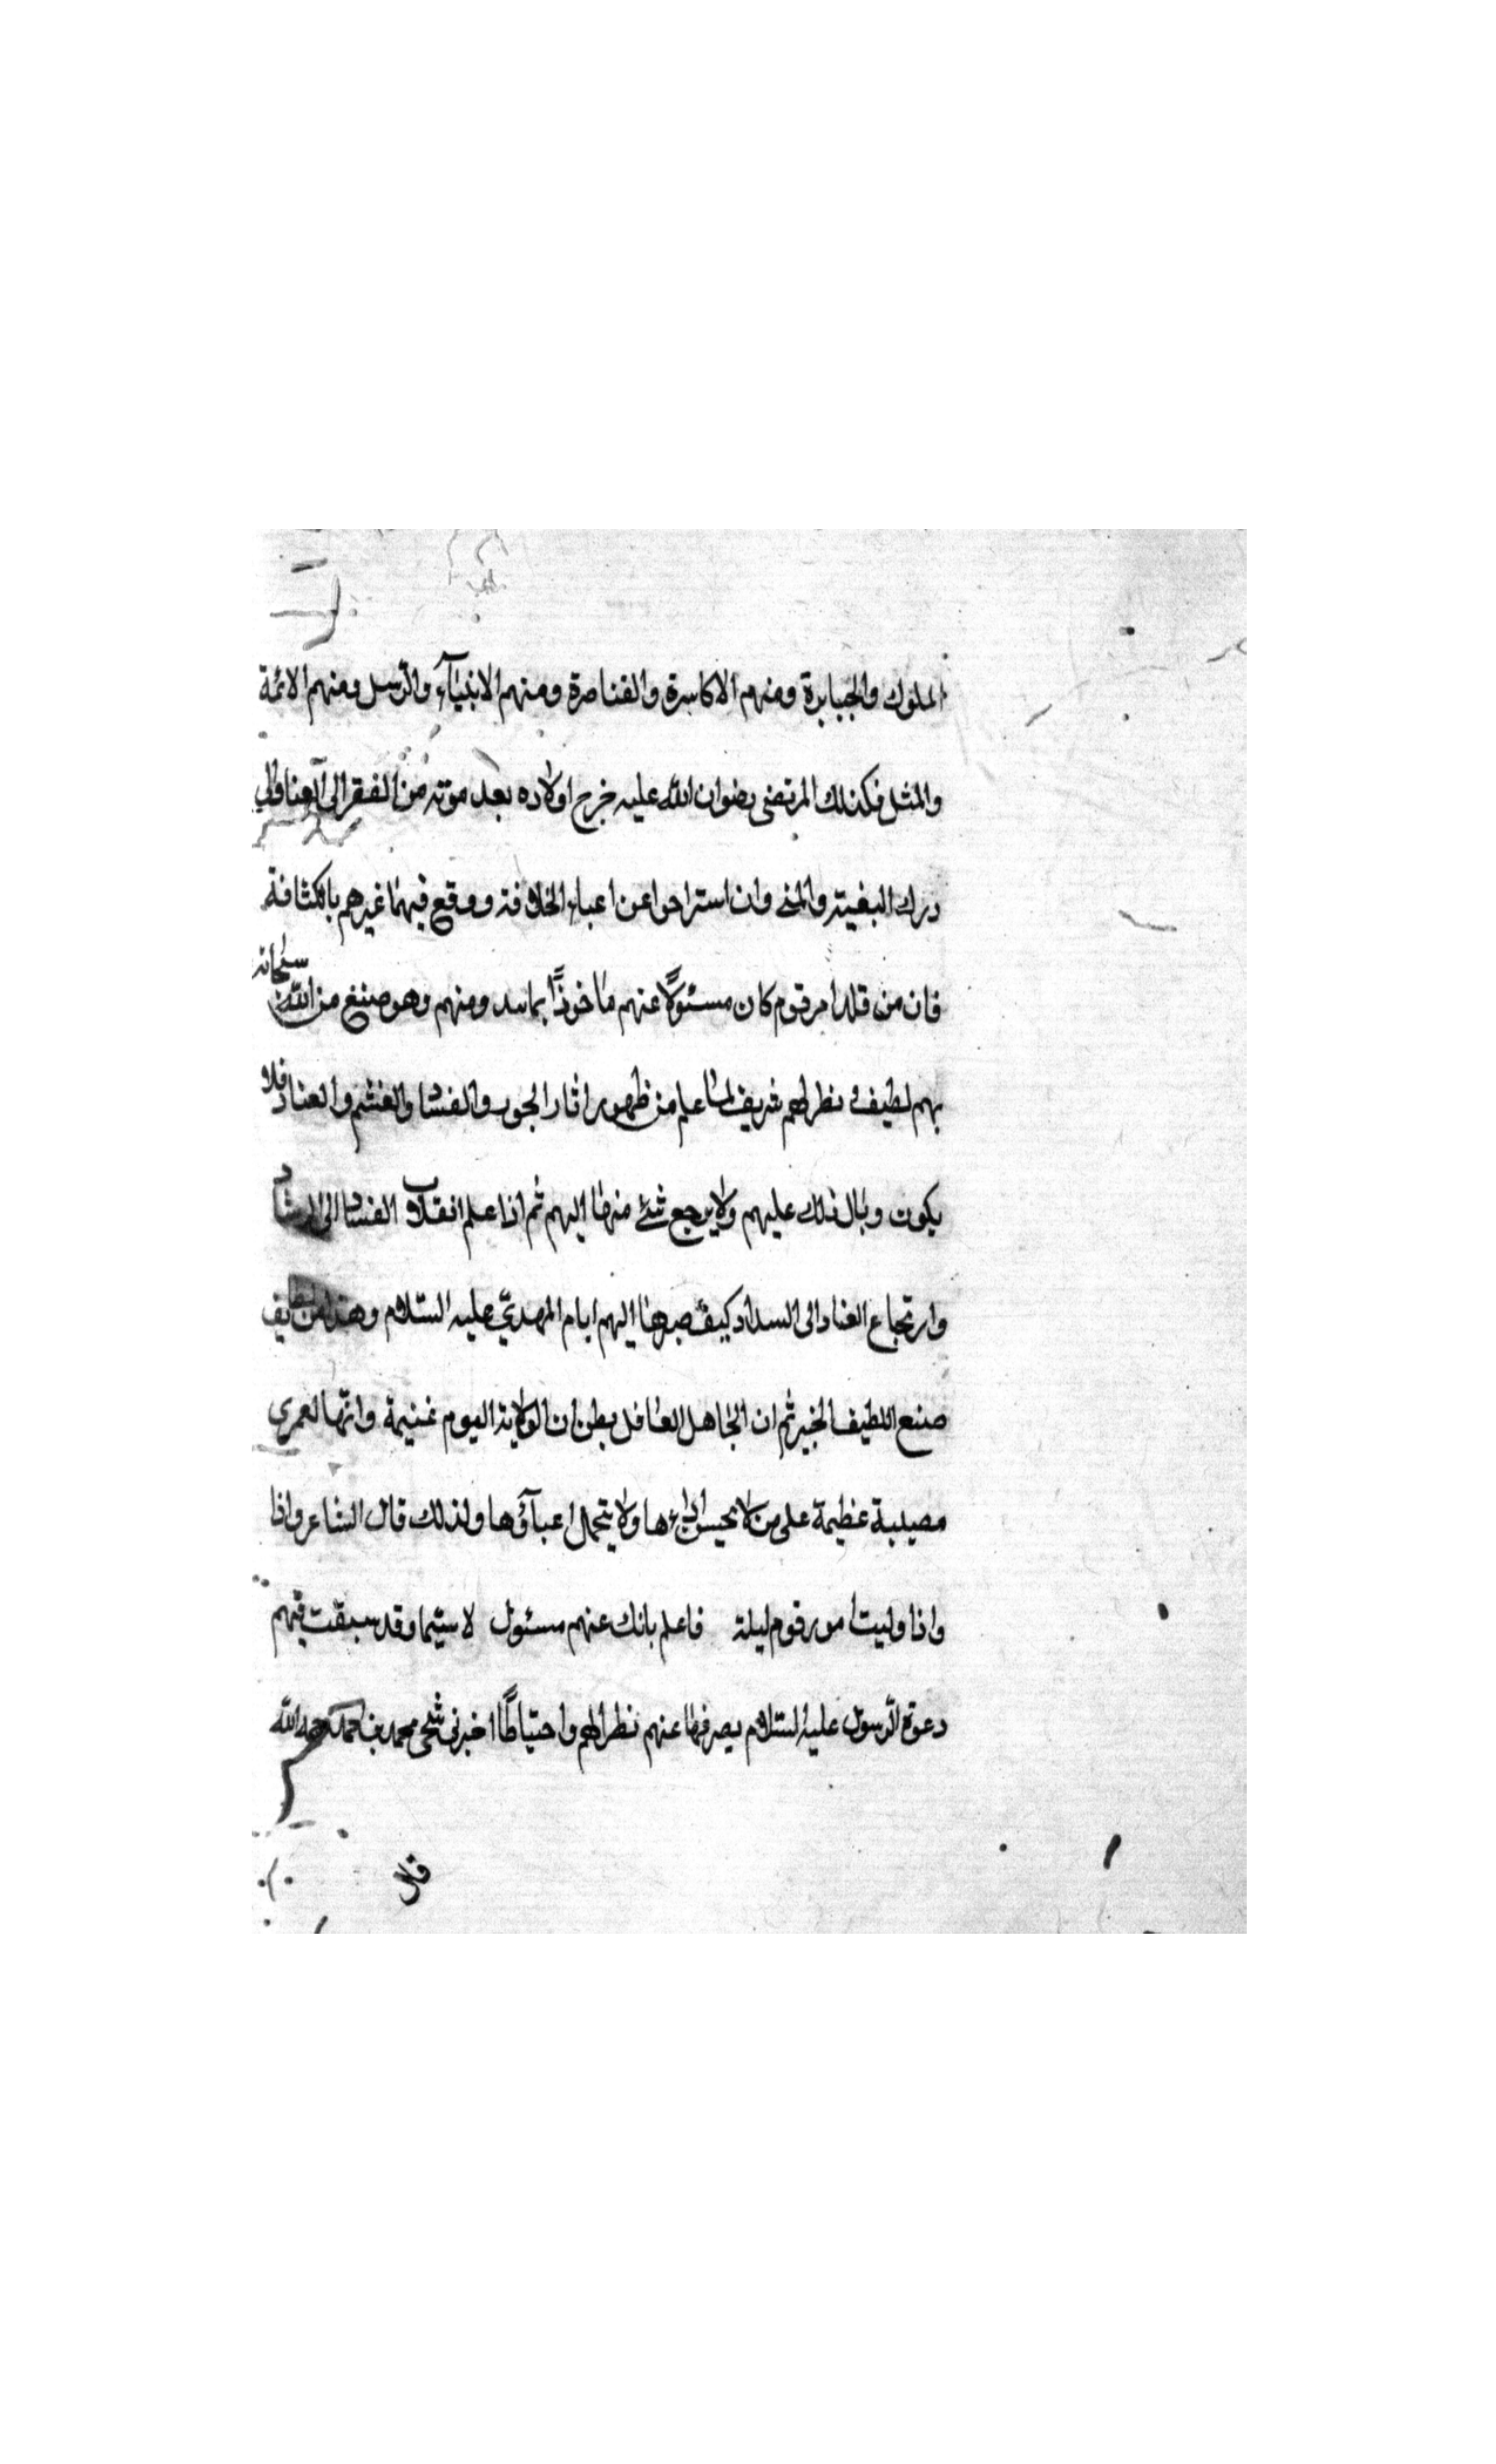 الملوك والجبابرة ومنهم الاكاسرة والقناصرة ومنهم الانبيآء والرّسل ومنهم الائمة
والمثل فكذلك المرتضى رضوان الله عليه خرج اولاده بعد موته من الفقر الى الغنا والى
درك البغية والمنى وان استراحوا عن اعباء الخلافة ووقع فيهما غيرهم بالكثافة
فان من قلد امر قوم كان مسئولًا عنهم ماخوذًا بما منهم وهو صنع من الله سبحانه
بهم لطيف ونظر لهم شريف لما علم من ظهور اثار الجور والفساد والغشم والعناد فلا
يكون وبال ذلك عليهم ولا يرجع شئ منها اليهم ثم اذا علم انقلاب الفساد الى الرشاد
وارتجاع العناد الى السداد كيف صرفها اليهم ايام المهديّ عليه السّلام وهذا من لطايف
صنع اللطيف الخبير ثم ان الجاهل الغافل يظن ان الولاية اليوم غنيمة وانّها لعمرى
مصيبة عظيمة على من لا يحسن ادآءها ولا يتحمل اعبآؤها ولذلك قال الشاعر واذا
واذا وليت امور قوم ليلة فاعلم بانك عنهم مسئول لا سيّما وقد سبقت فيهم
دعوة الرّسول عليه السّلام يصرفها عنهم نظرا لهم واحتياطًا اخبرنى شيخى محمد بن احمد رحمه الله
قال